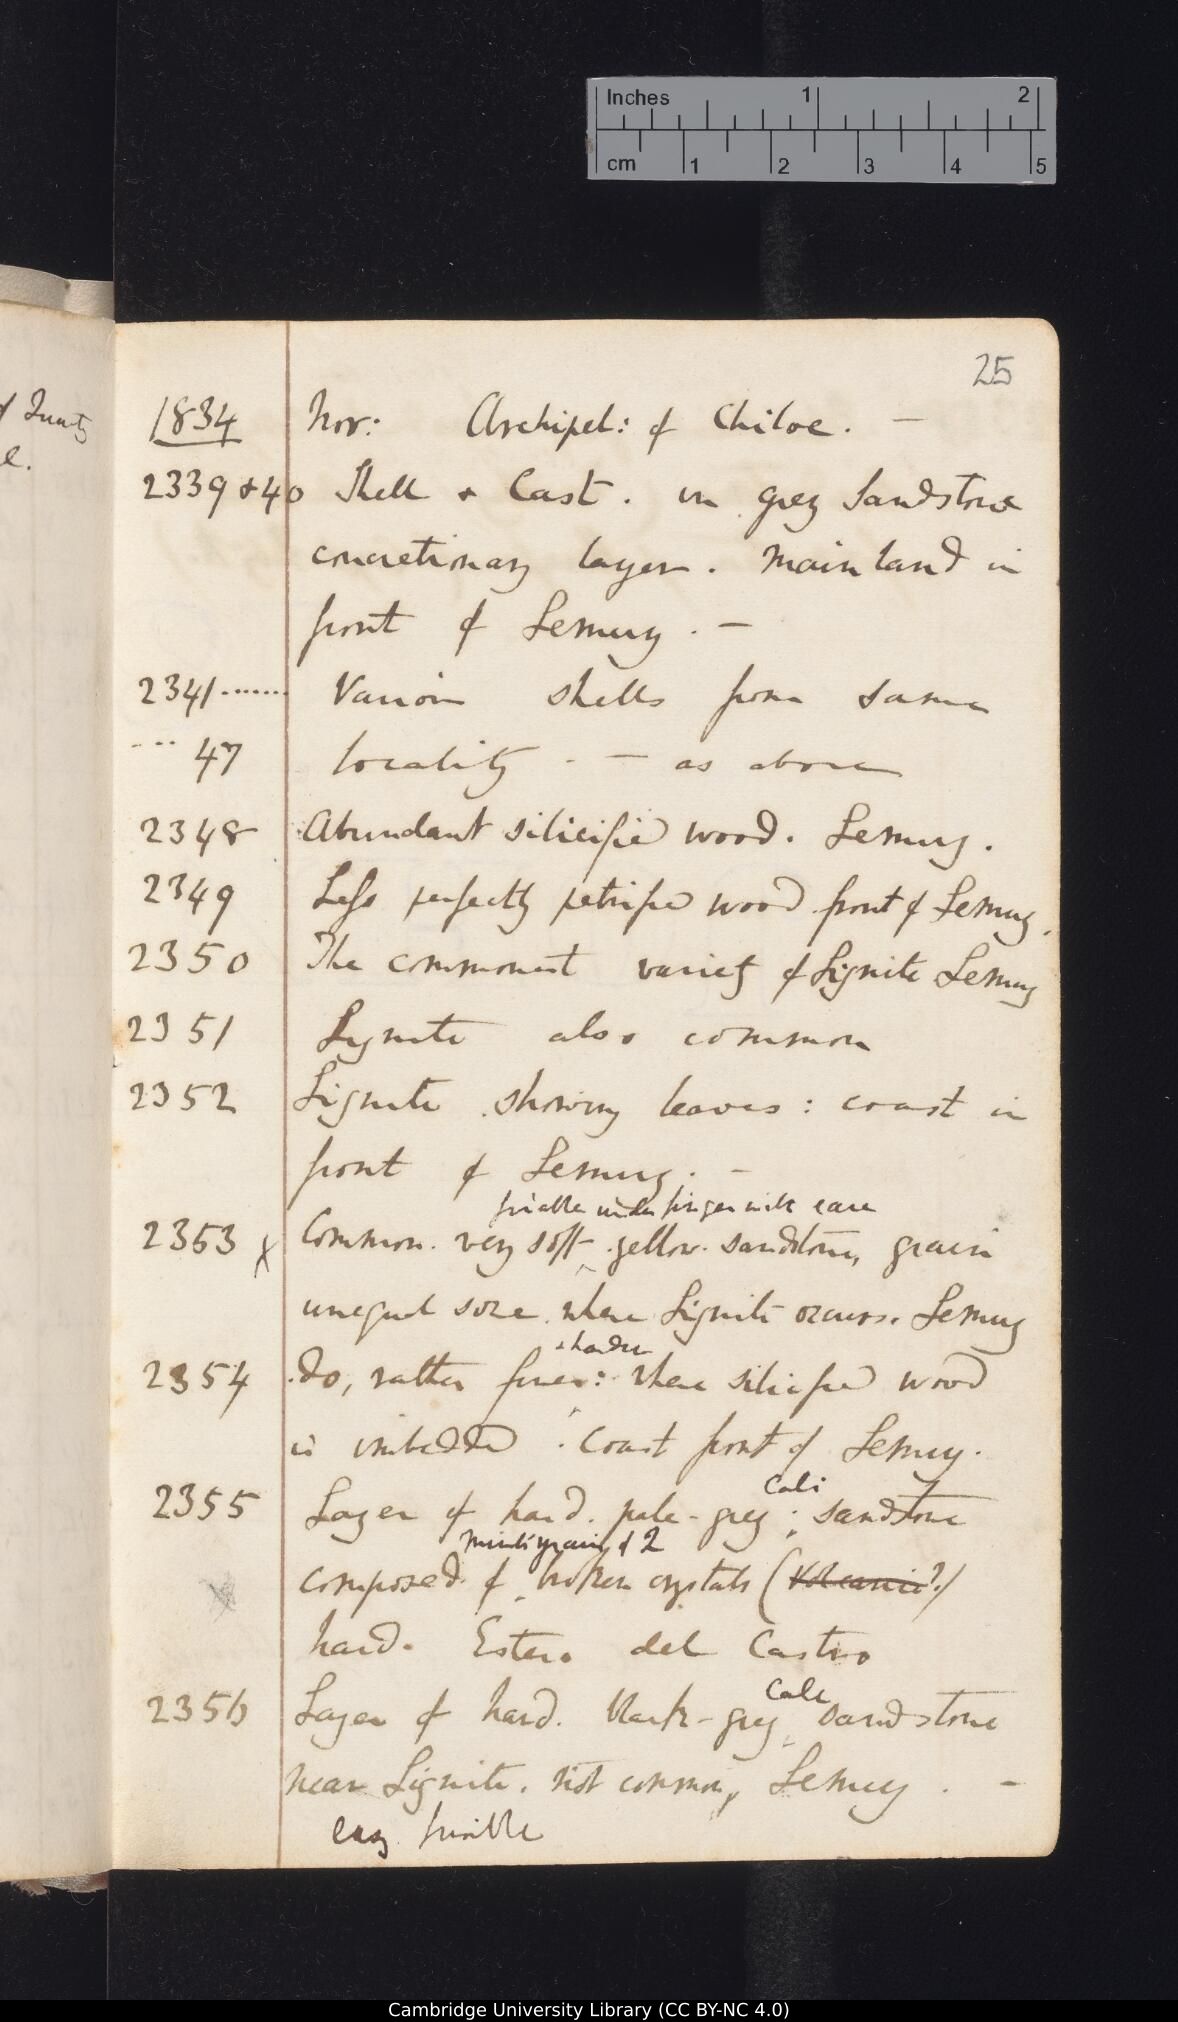 Inches 1 2
cm 1 2 3 4 5
25
1834 Nov: Archipel: of Chiloe. —
2339 & 40 Shell & Cast. in grey Sandstone
concretionary layer. Main land in
front of Lemuy. —
2341....... Various shells from same
.... 47 locality. — as above
2348 Abundant silicified wood. Lemuy.
2349 Less perfectly petrified wood front of Lemuy.
2350 The commonest variety of Lignite Lemuy
2351 Lignite also common
2352 Lignite showing leaves: coast in
front of Lemuy. —
friable under finger with care
2353 X Common. very soft yellow. sandstone, grain
unequal size where Lignite occurs. Lemuy
& harder
2354 do, rather finer: where silicified wood
is imbedded. Coast front of Lemuy.
Calc
2355 Layer of hard. pale-grey; sandstone
grains of 2
composed of broken crystals (Volcanic?)
hard. Estero del Castro
Calc
2356 Layer of hard. black-grey Sandstone
near Lignite. not common, Lemuy. —
easy friable
of
e.
Cambridge University Library (CC BY-NC 4.0)